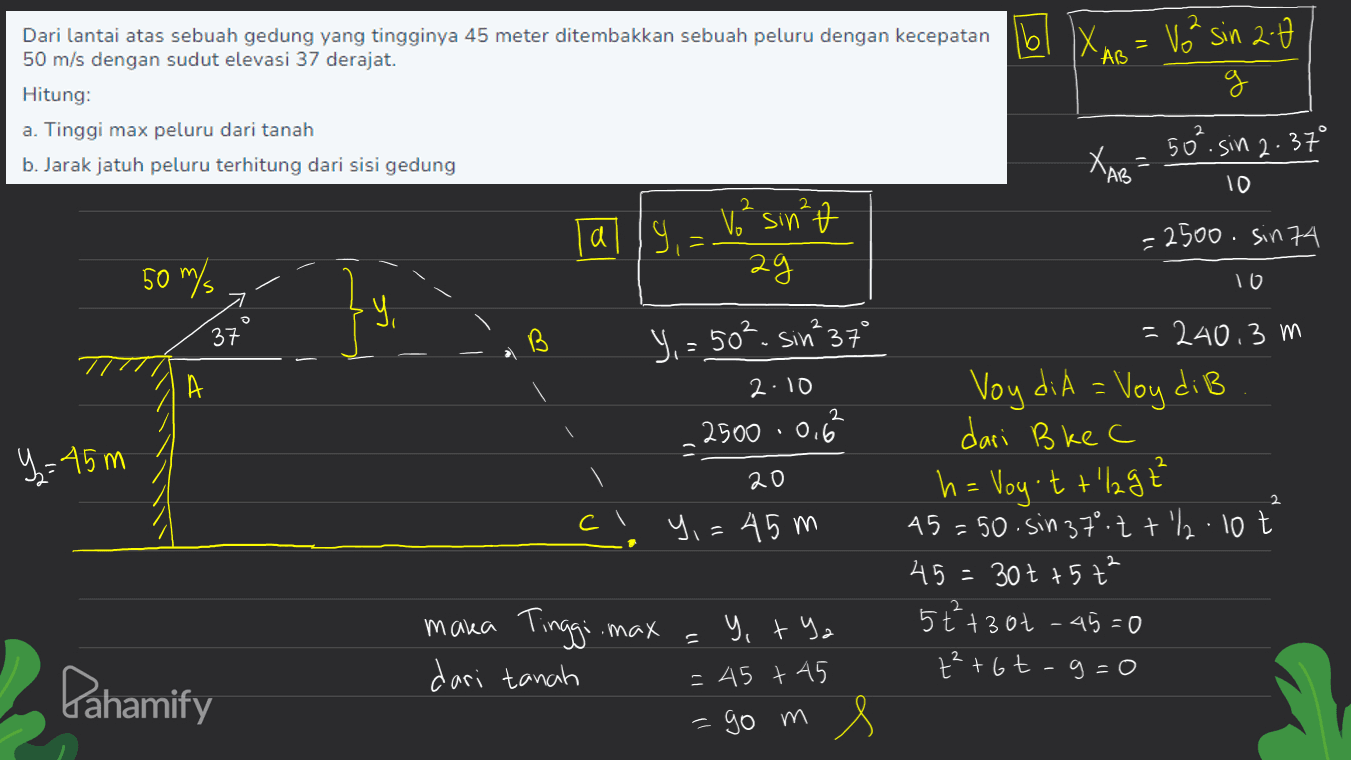 Dari lantai atas sebuah gedung yang tingginya 45 meter ditembakkan sebuah peluru dengan kecepatan
50 m/s dengan sudut elevasi 37 derajat.
Hitung:
a. Tinggi max peluru dari tanah
b. Jarak jatuh peluru terhitung dari sisi gedung
50 m/s
37°
y₁
A
B
y₂ = 45 m
C
a
y₁ = V₀² sin² θ / 2g
y₁ = 50² . sin² 37° / 2.10
= 2500 . 0,6² / 20
y₁ = 45 m
maka Tinggi max = y₁ + y₂
dari tanah = 45 + 45
= 90 m
b
X_AB = V₀² sin 2.θ / g
X_AB = 50² . sin 2 . 37° / 10
= 2500 . sin 74 / 10
= 240,3 m
Voy di A = Voy di B
dari B ke C
h = Voy . t + 1/2 g t²
45 = 50 . sin 37° . t + 1/2 . 10 t²
45 = 30t + 5t²
5t² + 30t - 45 = 0
t² + 6t - 9 = 0
Pahamify